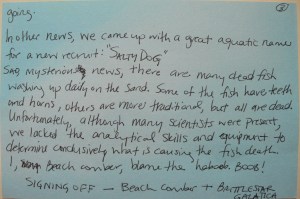 going.
In other news, we came up with a great aquatic name
for a new recruit: "SALTY DOG"
mysterious news, there are many dead fish
washing up daily on the sand. Some of the fish have teeth
and horns, others are more traditional, but all are dead.
Unfortunately, although many scientists were present,
we lacked the analytical skills and equipment to
determine conclusively what is causing the fish death.
I, Beach comber, blame the BOOB!
SIGNING OFF — Beach comber + BATTLESTAR
GALATICA